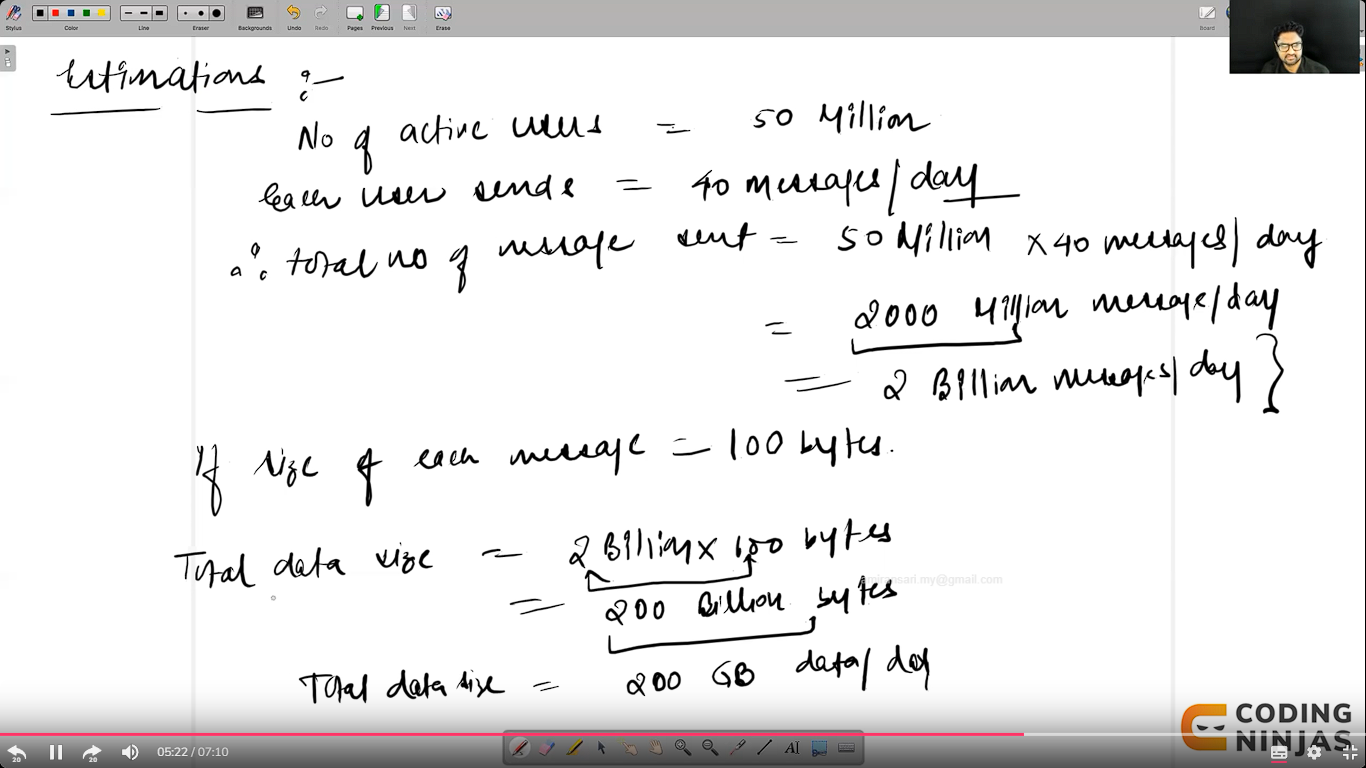 Stylus
Color
Line
Eraser
Backgrounds
Undo
Redo
Pages
Previous
Next
Erase
Board
Estimations :-
No of active users = 50 Million
Each user sends = 40 messages/day
∴ total no of message sent = 50 Million × 40 messages/day
= 2000 Million message/day
= 2 Billion messages/day }
If size of each message = 100 bytes.
Total data size = 2 Billion × 100 bytes
= 200 Billion bytes
Total data size = 200 GB data/day
20
20
05:22 / 07:10
AI
CODING
NINJAS